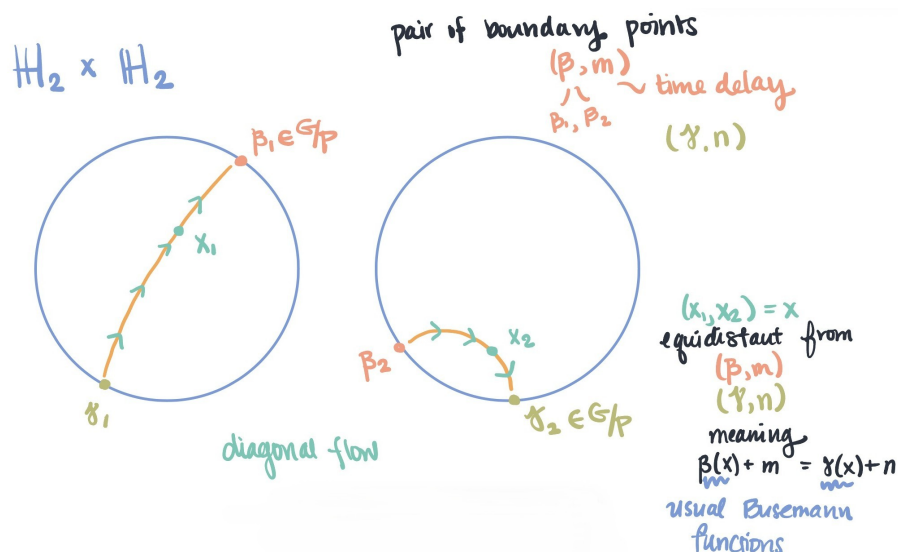 ℍ₂ × ℍ₂
pair of boundary points
(β, m)
β₁, β₂
~ time delay
(γ, n)
β₁ ∈ G/P
x₁
γ₁
β₂
x₂
γ₂ ∈ G/P
diagonal flow
(x₁, x₂) = x
equidistant from
(β, m)
(γ, n)
meaning
β(x) + m = γ(x) + n
usual Busemann
functions